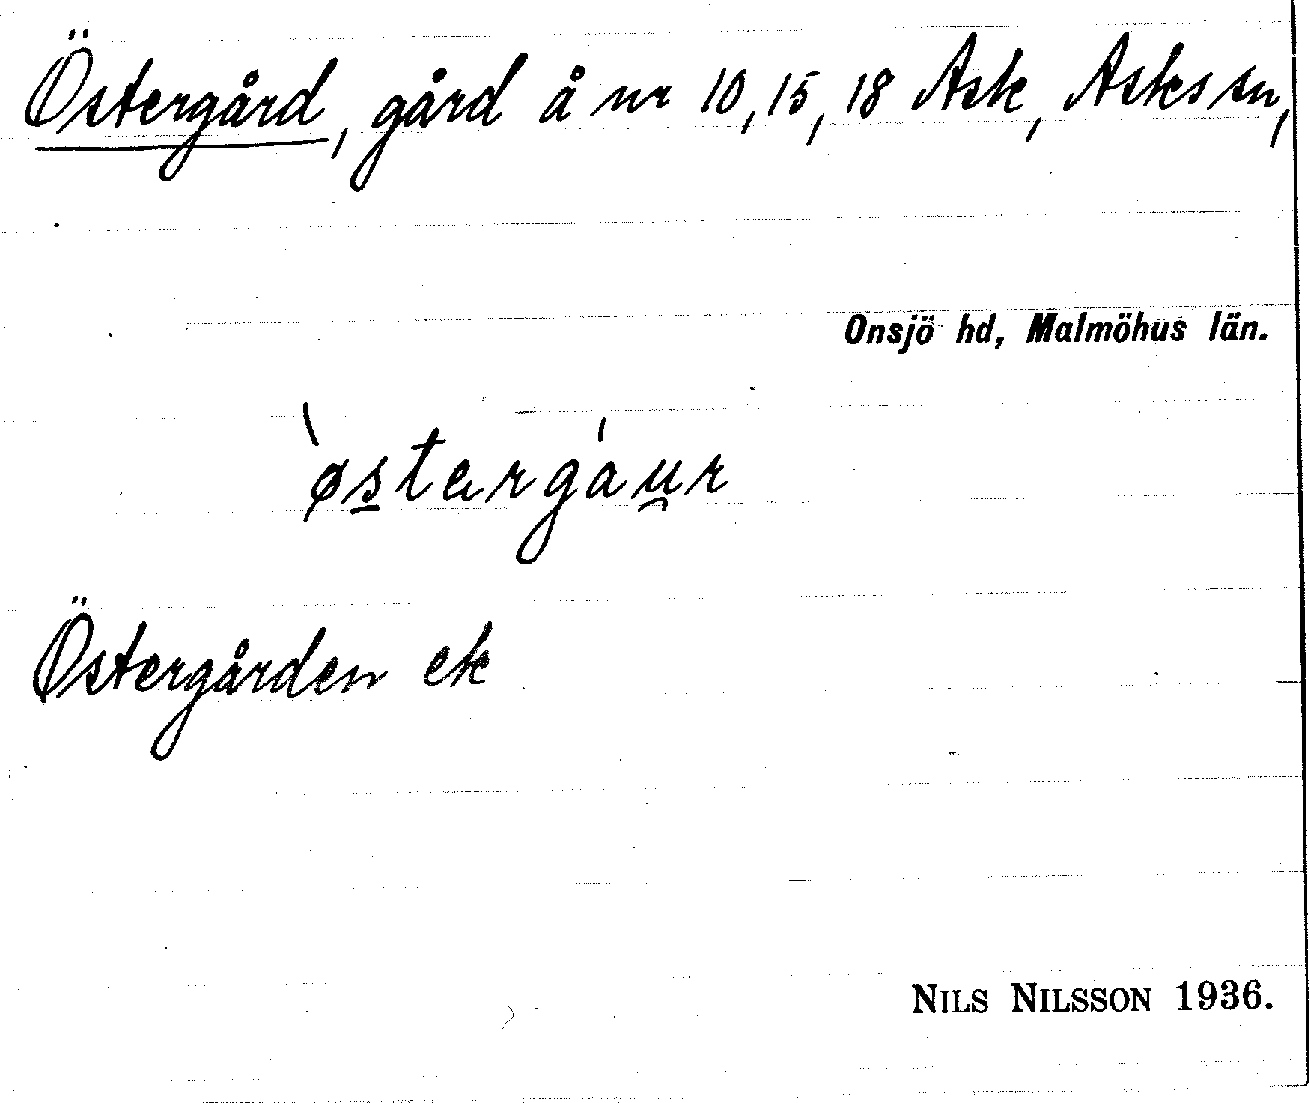 Östergård, gård å nr 10, 15, 18 Ask, Asks sn,
Onsjö hd, Malmöhus län.
̀øs̲tærgáu̯r
Östergården ek
NILS NILSSON 1936.